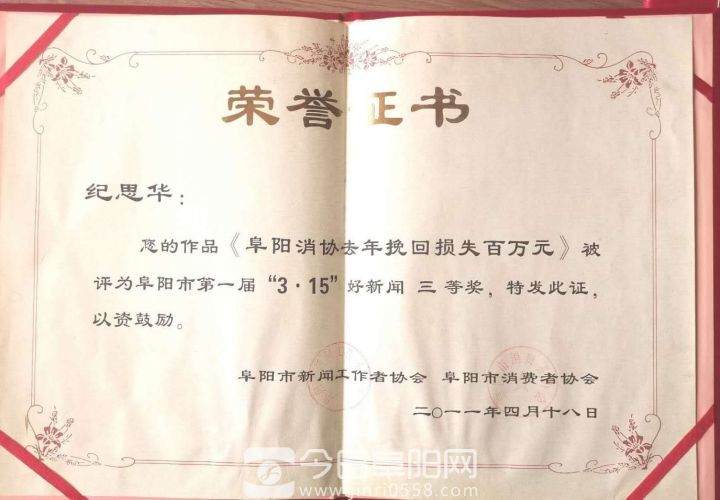 荣誉证书
纪思华：
您的作品《阜阳消协去年挽回损失百万元》被
评为阜阳市第一届“3·15”好新闻 三 等奖，特发此证，
以资鼓励。
阜阳市新闻工作者协会 阜阳市消费者协会
二〇一一年四月十八日
今日阜阳网
www.jinri0558.com